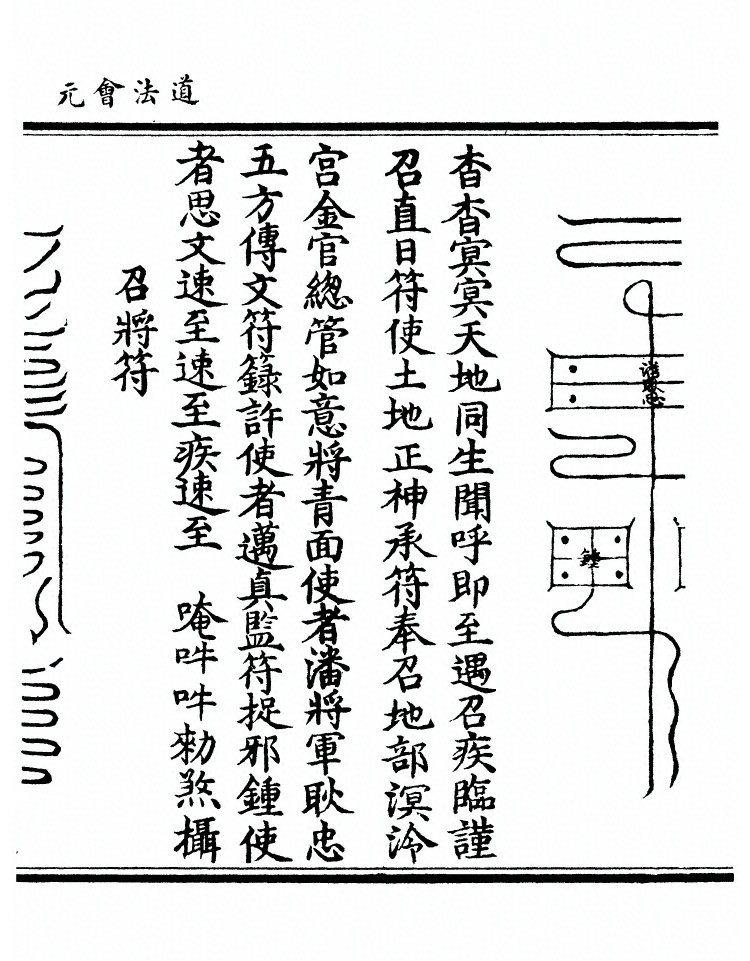 道法會元
潘耿忠
鍾
杳杳冥冥天地同生聞呼即至遇召疾臨謹
召直日符使土地正神承符奉召地部溟泠
宮金官總管如意將青面使者潘將軍耿忠
五方傳文符籙許使者邁真監符捉邪鍾使
者思文速至速至疾速至　唵吽吽勑煞攝
召將符